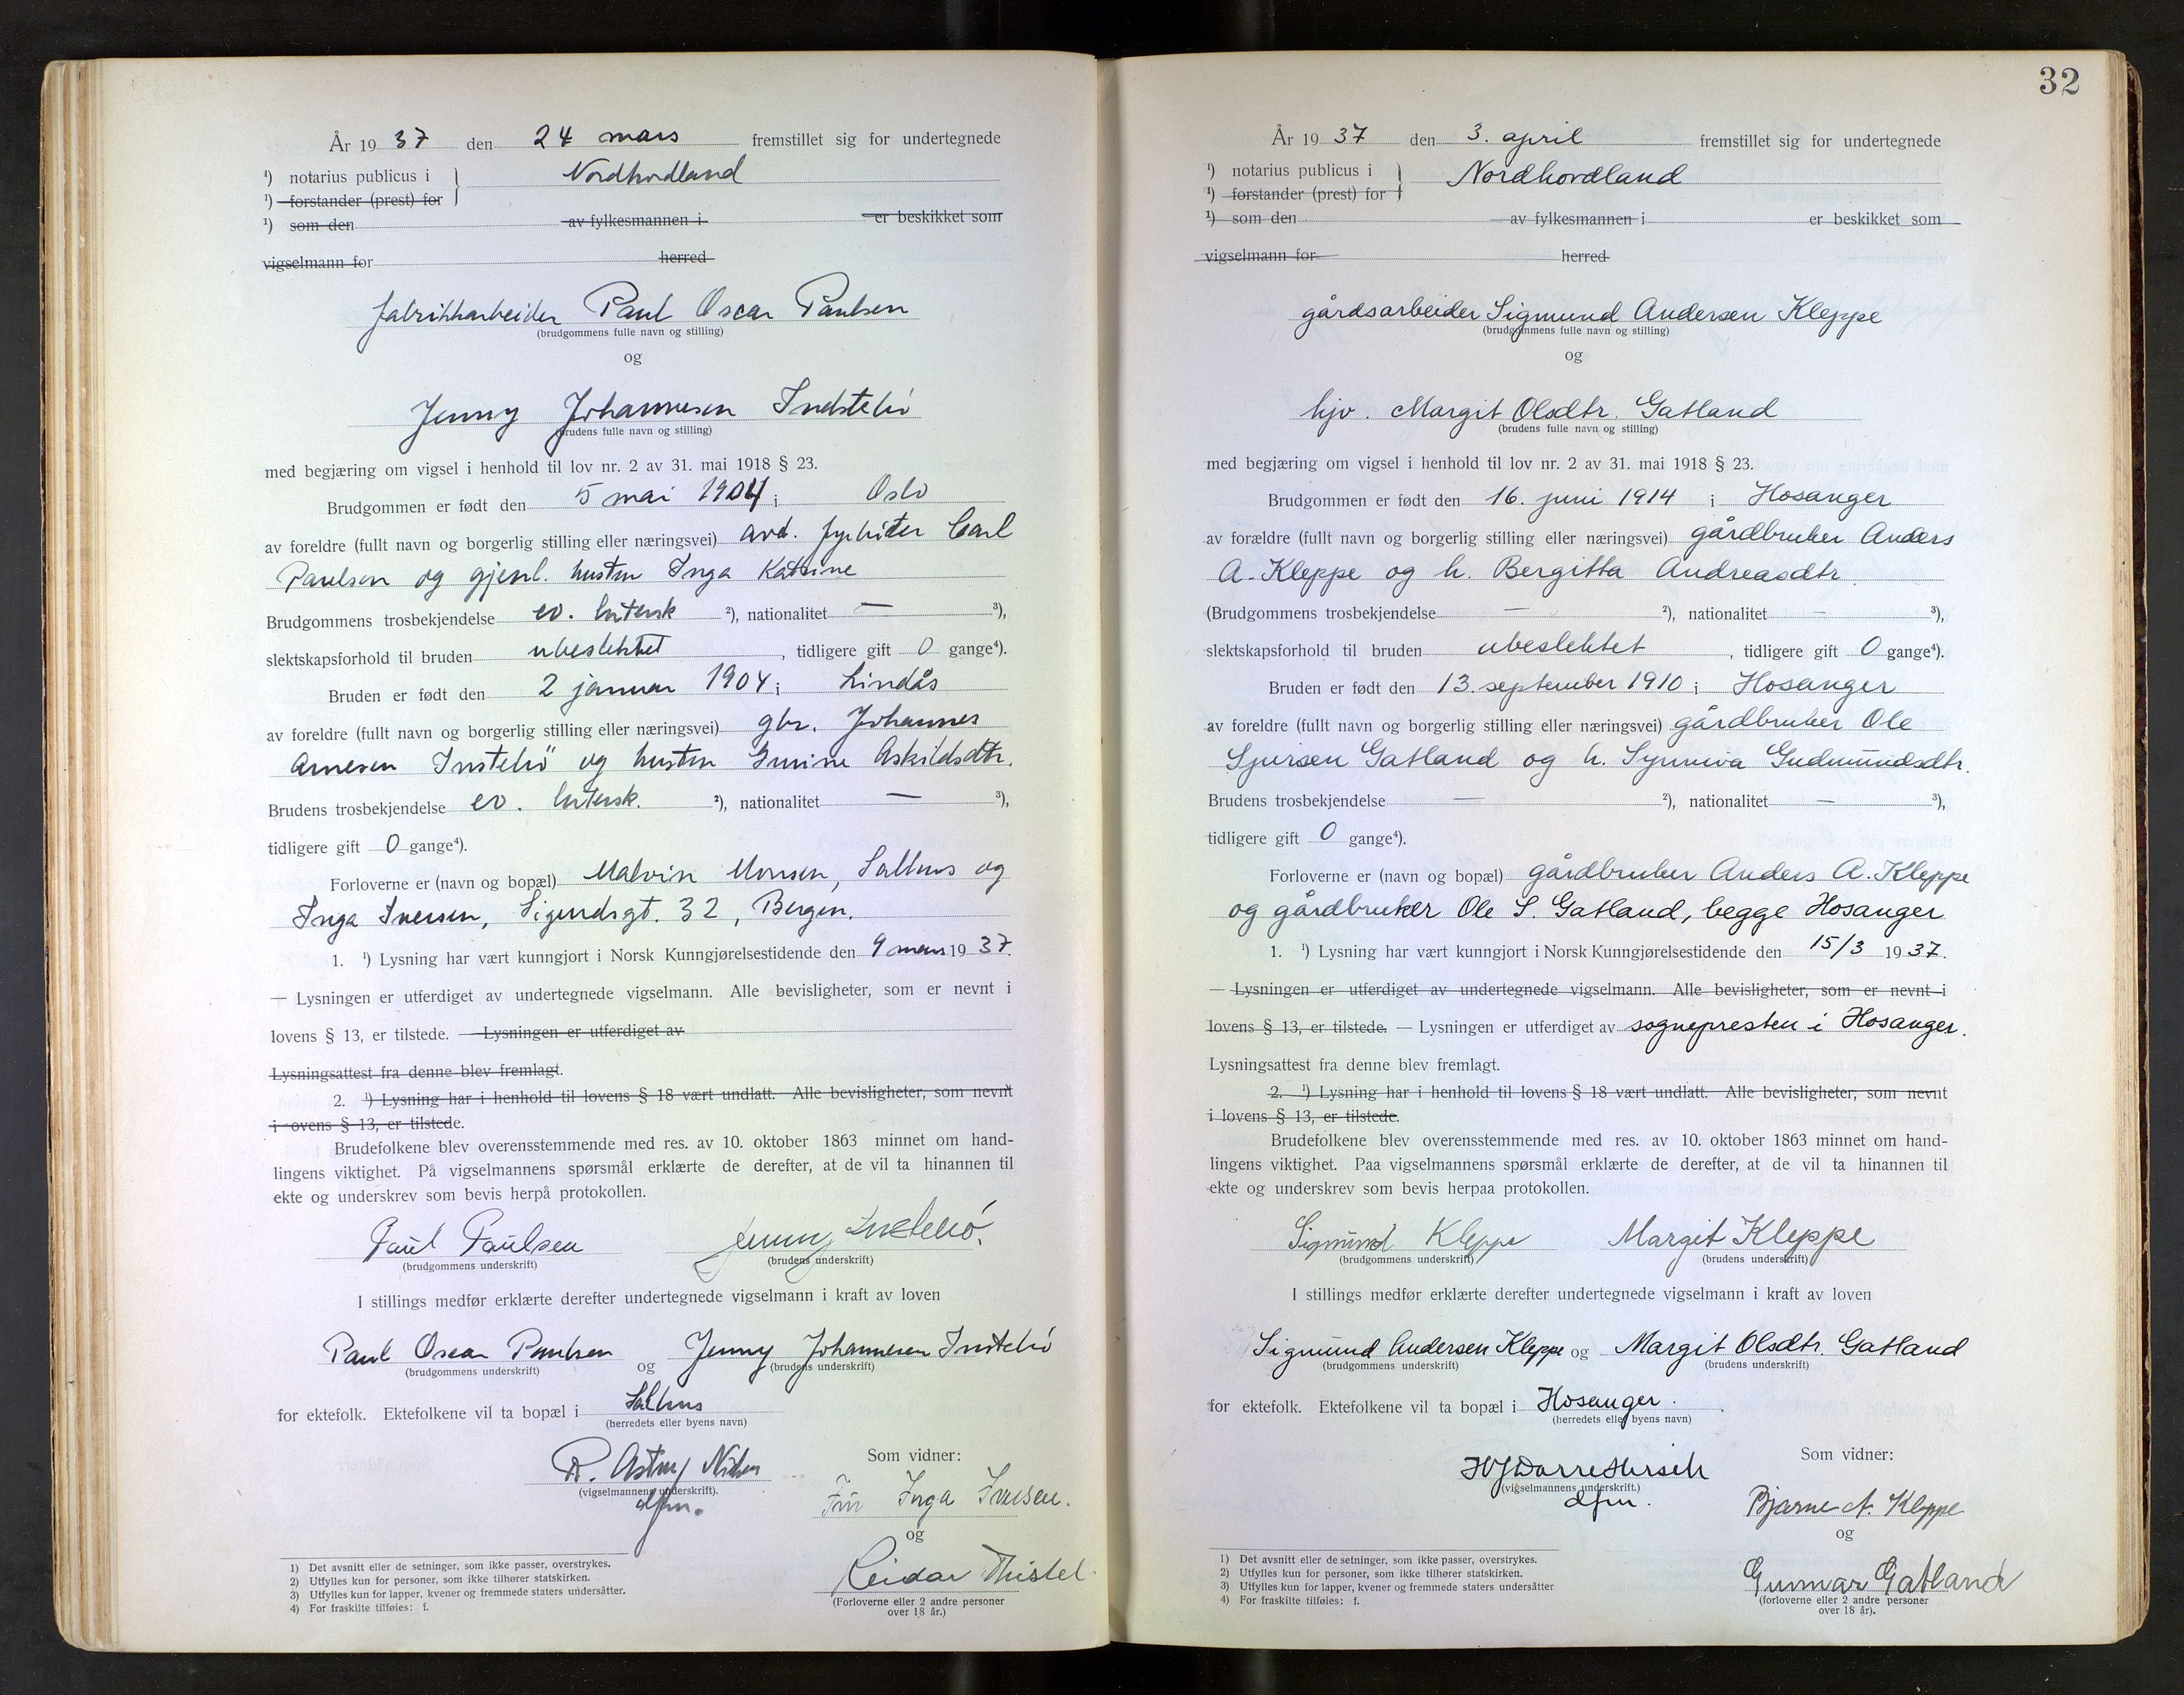 År 1937 den 24 mars fremstillet sig for undertegnede
¹) notarius publicus i Nordhordland
¹) forstander (prest) for
¹) som den av fylkesmannen i er beskikket som
vigselmann for herred
fabrikkarbeider Paul Oscar Paulsen
(brudgommens fulle navn og stilling)
og
Jenny Johannesen Indstebø
(brudens fulle navn og stilling)
med begjæring om vigsel i henhold til lov nr. 2 av 31. mai 1918 § 23.
Brudgommen er født den 5 mai 1904 i Oslo
av foreldre (fullt navn og borgerlig stilling eller næringsvei) avd. fyrbøter Carl
Paulsen og gjenl. hustru Inga Katrine
Brudgommens trosbekjendelse ev. lutersk ²), nationalitet — ³),
slektskapsforhold til bruden ubeslektet, tidligere gift 0 gange⁴).
Bruden er født den 2 januar 1904 i Lindås
av foreldre (fullt navn og borgerlig stilling eller næringsvei) gbr. Johannes
Arnesen Instebö og hustru Askildsdtr.
Brudens trosbekjendelse ev. lutersk. ²), nationalitet — ³),
tidligere gift 0 gange⁴).
Forloverne er (navn og bopæl) Malvin Monsen, Salhus og
Inga Iversen, Sigurdsgt. 32, Bergen.
1. ¹) Lysning har vært kunngjort i Norsk Kunngjørelsestidende den 9 mars 1937.
— Lysningen er utferdiget av undertegnede vigselmann. Alle bevisligheter, som er nevnt i
lovens § 13, er tilstede. — Lysningen er utferdiget av
Lysningsattest fra denne blev fremlagt.
2. ¹) Lysning har i henhold til lovens § 18 vært undlatt. Alle bevisligheter, som nevnt
i ovens § 13, er tilstede.
Brudefolkene blev overensstemmende med res. av 10. oktober 1863 minnet om hand-
lingens viktighet. På vigselmannens spørsmål erklærte de derefter, at de vil ta hinannen til
ekte og underskrev som bevis herpå protokollen.
Paul Paulsen Jenny Instebø.
(brudgommens underskrift) (brudens underskrift)
I stillings medfør erklærte derefter undertegnede vigselmann i kraft av loven
Paul Oscar Paulsen og Jenny Johannesen Instebø
(brudgommens underskrift) (brudens underskrift)
for ektefolk. Ektefolkene vil ta bopæl i Salhus
(herredets eller byens navn)
R. Astrup Nilsen
(vigselmannens underskrift).
dfm.
Som vidner:
Fru Inga Iversen.
og
Reidar Thistel.
(Forloverne eller 2 andre personer
over 18 år.)
1) Det avsnitt eller de setninger, som ikke passer, overstrykes.
2) Utfylles kun for personer, som ikke tilhører statskirken.
3) Utfylles kun for lapper, kvener og fremmede staters undersåtter.
4) For fraskilte tilføies: f.
32
År 1937 den 3. april fremstillet sig for undertegnede
¹) notarius publicus i Nordhordland
¹) forstander (prest) for
¹) som den av fylkesmannen i er beskikket som
vigselmann for herred
gårdsarbeider Sigmund Andersen Kleppe
(brudgommens fulle navn og stilling)
og
hjv. Margit Olsdtr. Gatland
(brudens fulle navn og stilling)
med begjæring om vigsel i henhold til lov nr. 2 av 31. mai 1918 § 23.
Brudgommen er født den 16. juni 1914 i Hosanger
av forældre (fullt navn og borgerlig stilling eller næringsvei) gårdbruker Anders
A. Kleppe og h. Bergitta Andreasdtr
(Brudgommens trosbekjendelse — ²), nationalitet — ³),
slektskapsforhold til bruden ubeslektet, tidligere gift 0 gange⁴).
Bruden er født den 13. september 1910 i Hosanger
av foreldre (fullt navn og borgerlig stilling eller næringsvei) gårdbruker Ole
Sjursen Gatland og h. Synneva Gudmundsdtr.
Brudens trosbekjendelse — ²), nationalitet — ³),
tidligere gift 0 gange⁴).
Forloverne er (navn og bopæl) gårdbruker Anders A. Kleppe
og gårdbruker Ole S. Gatland, begge Hosanger
1. ¹) Lysning har vært kunngjort i Norsk Kunngjørelsestidende den 15/3 1937.
— Lysningen er utferdiget av undertegnede vigselmann. Alle bevisligheter, som er nevnt i
lovens § 13, er tilstede. — Lysningen er utferdiget av sognepresten i Hosanger.
Lysningsattest fra denne blev fremlagt.
2. ¹) Lysning har i henhold til lovens § 18 vært undlatt. Alle bevisligheter, som nevnt
i lovens § 13, er tilstede.
Brudefolkene blev overensstemmende med res. av 10. oktober 1863 minnet om hand-
lingens viktighet. Paa vigselmannens spørsmål erklærte de derefter, at de vil ta hinannen til
ekte og underskrev som bevis herpaa protokollen.
Sigmund Kleppe Margit Kleppe
(brudgommens underskrift) (brudens underskrift)
I stillings medfør erklærte derefter undertegnede vigselmann i kraft av loven
Sigmund Andersen Kleppe og Margit Olsdtr. Gatland
(brudgommens underskrift) (brudens underskrift)
for ektefolk. Ektefolkene vil ta bopæl i Hosanger.
(herredets eller byens navn)
Darre Hirsch
(vigselmannens underskrift.)
dfm.
Som vidner:
Bjarne A. Kleppe
og
Gunnar Gatland
(forloverne eller 2 andre personer
over 18 år).
1) Det avsnitt eller de setninger, som ikke passer, overstrykes.
2) Utfylles kun for personer, som ikke tilhører statskirken.
3) Utfylles kun for lapper, kvener og fremmede staters undersåtter
4) For fraskilte tilføies: f.